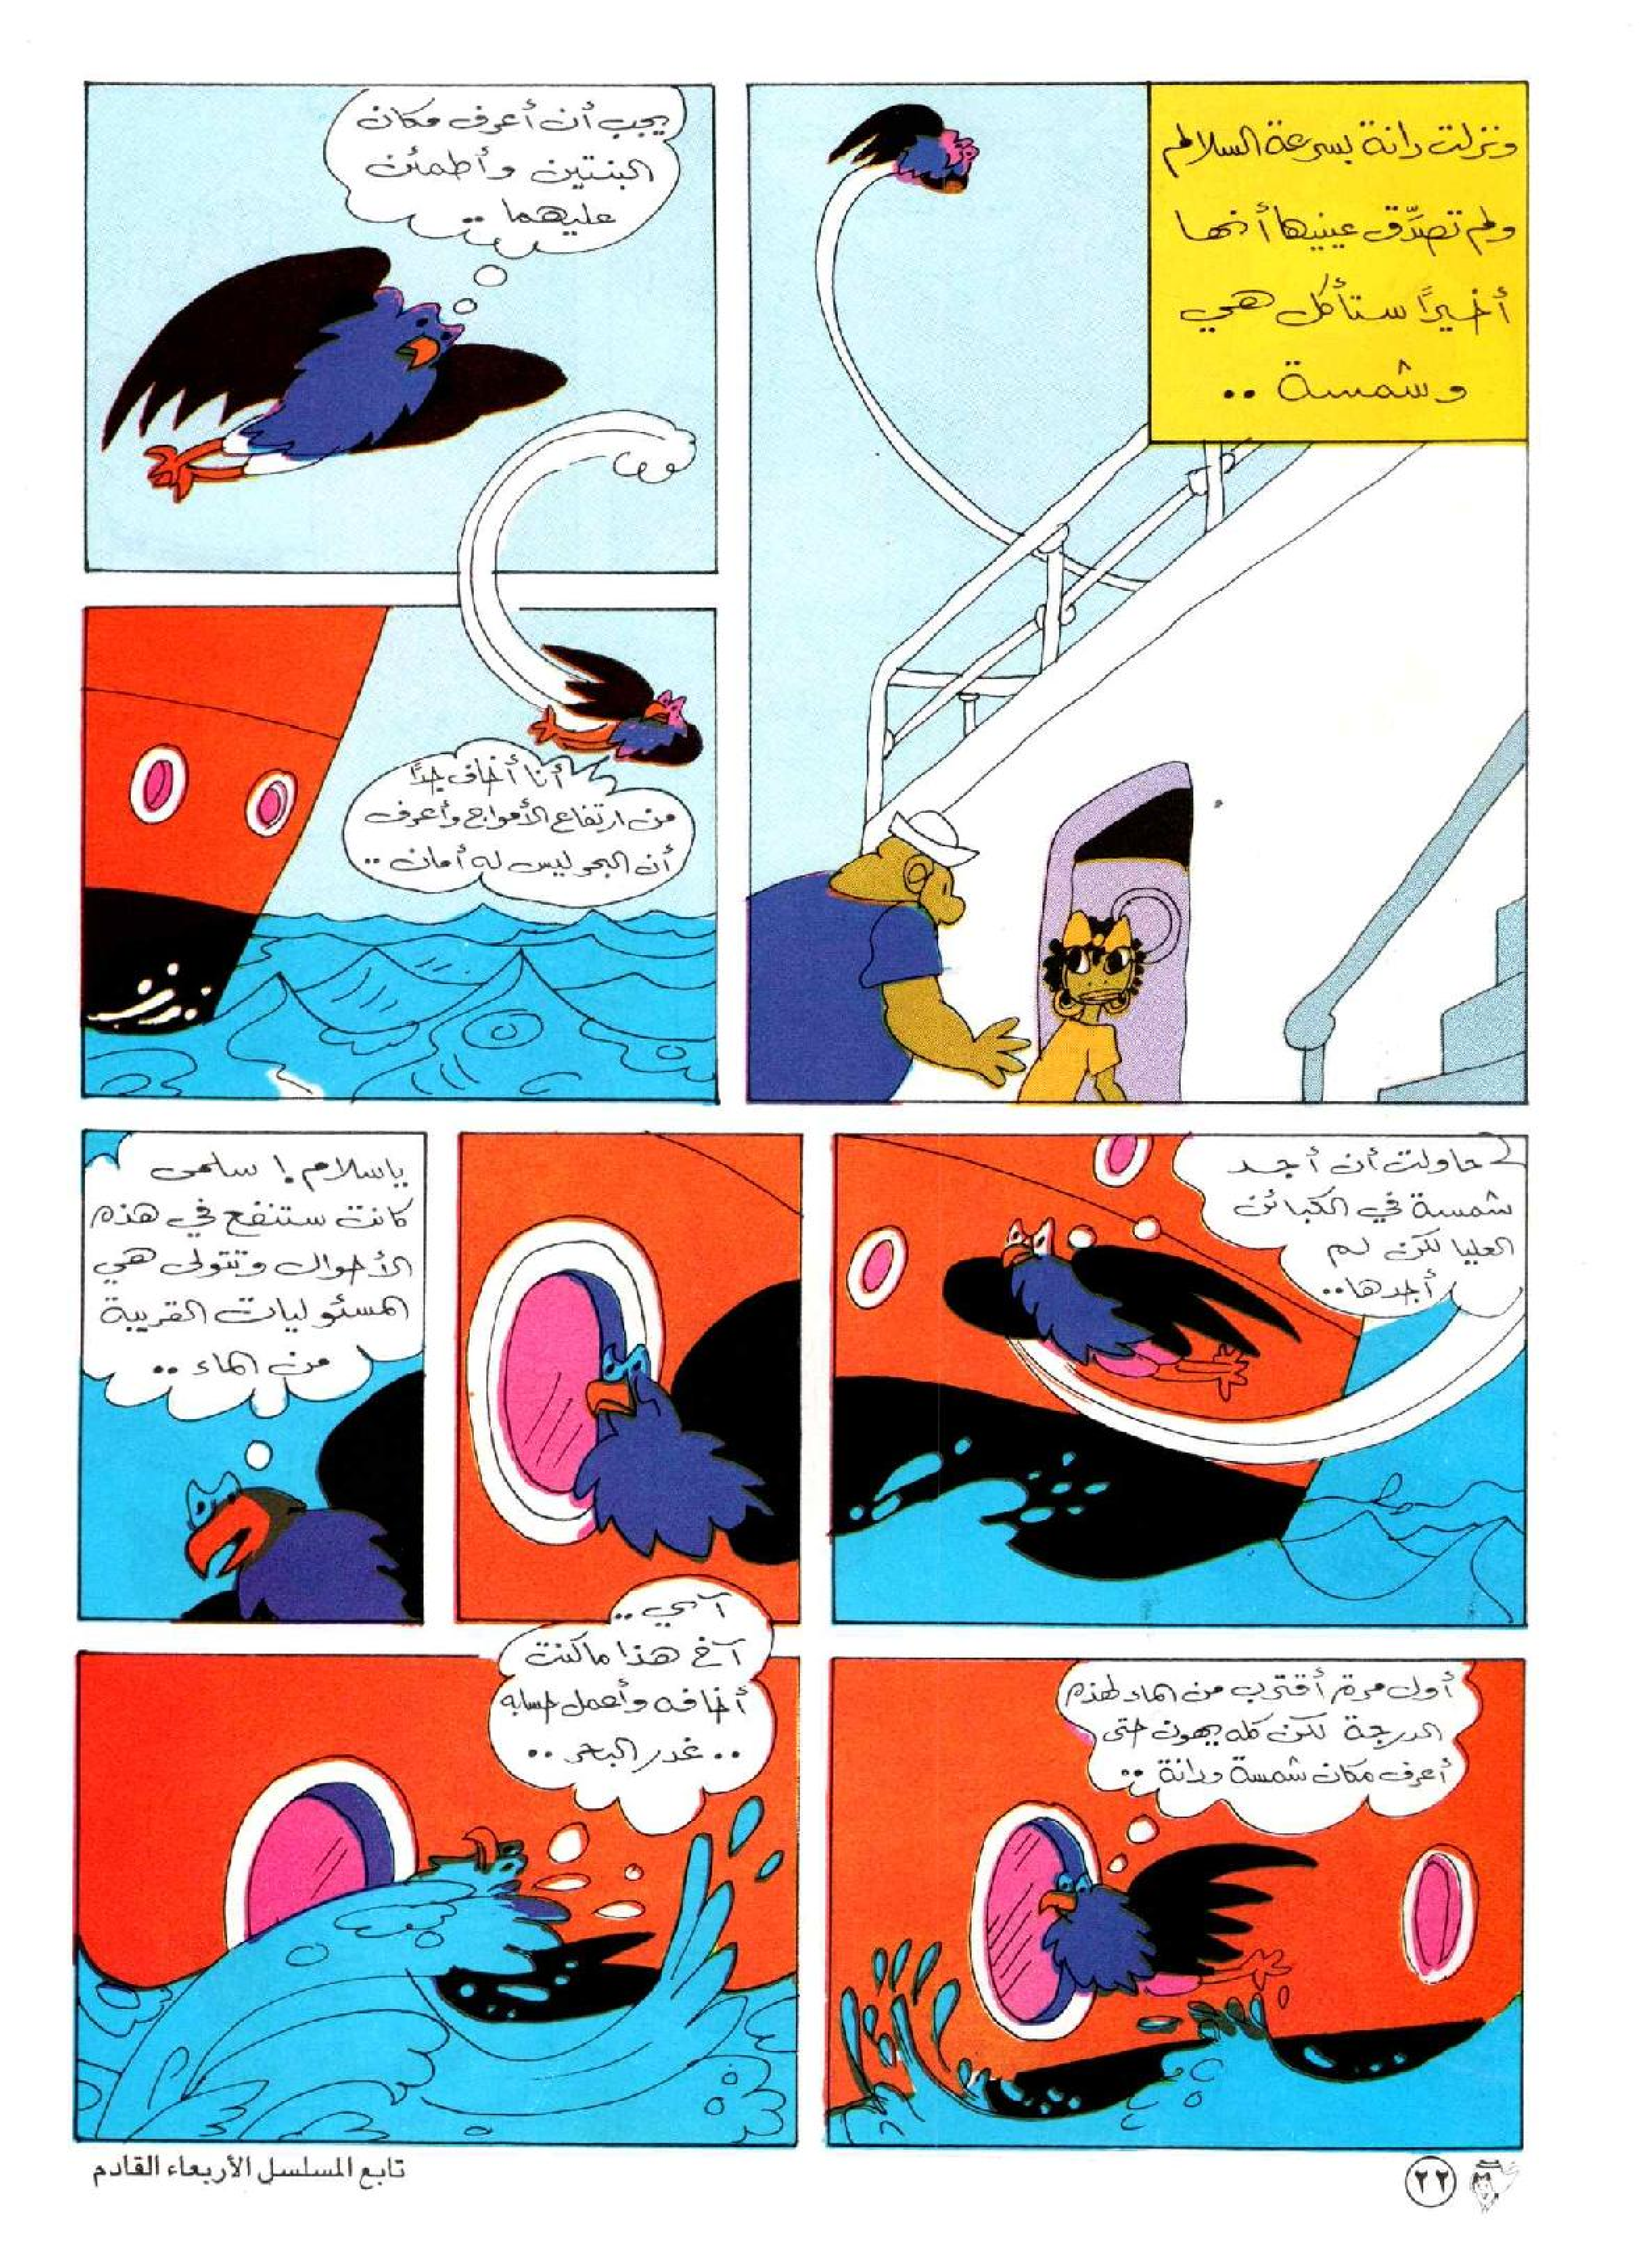 ونزلت دانة بسرعة السلالم
ولم تصدّق عينيها أنها
أخيرًا ستأكل هي
وشمسة ..
يجب أن أعرف مكان
البنتين وأطمئن
عليهما ..
أنا أخاف جدًا
من ارتفاع الأمواج وأعرف
أن البحر ليس له أمان ..
حاولت أن أجد
شمسة في الكبائن
العليا لكن لم
أجدها ..
ياسلام ! سلمى
كانت ستنفع في هذه
الأحوال وتتولى هي
المسئوليات القريبة
من الماء ..
أول مرة أقترب من الماء لهذه
الدرجة لكن كله يهون حتى
أعرف مكان شمسة ودانة ..
آ بي ..
آخ هذا ما كنت
أخافه وأعمل حسابه
.. غدر البحر ..
٢٢
تابع المسلسل الأربعاء القادم